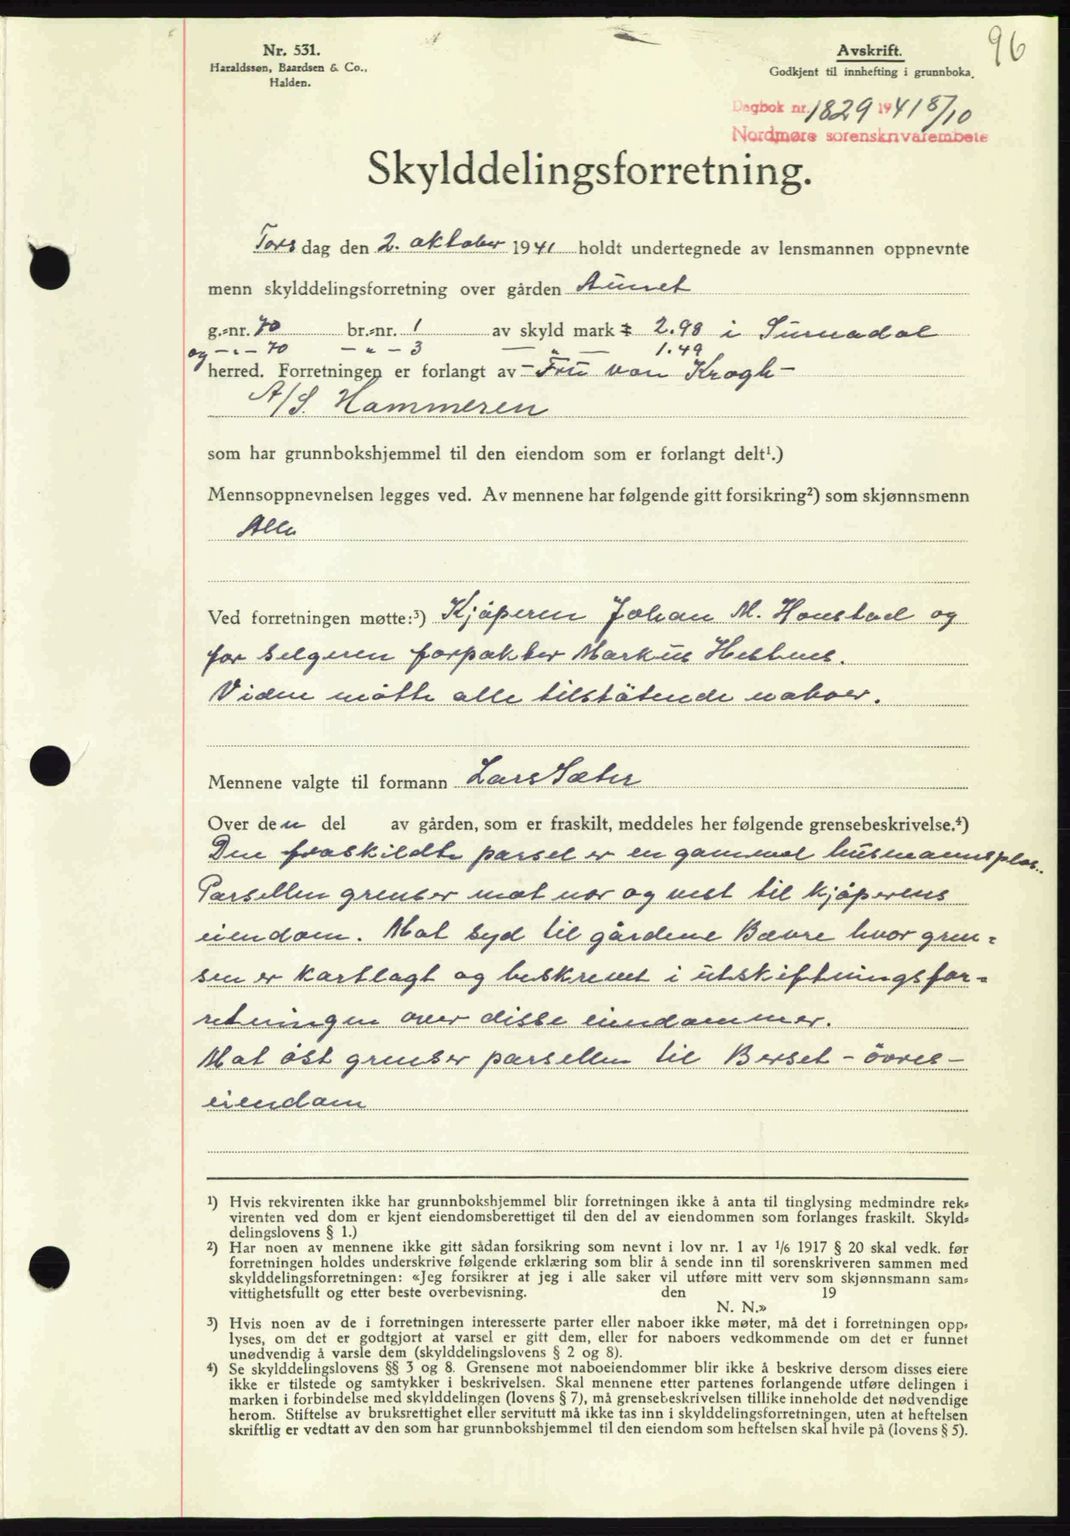 96
Nr. 531.
Haraldssøn, Baardsen & Co.,
Halden.
Avskrift.
Godkjent til innhefting i grunnboka.
Dagbok nr. 1829 1941 8/10
Nordmøre sorenskriverembete
Skylddelingsforretning.
Tors dag den 2. oktober 1941 holdt undertegnede av lensmannen oppnevnte
menn skylddelingsforretning over gården Aunet
g.-nr. 70 br.-nr. 1 av skyld mark 2.98 i Surnadal
og - „ - 70 - „ - 3 - „ - 1.49
herred. Forretningen er forlangt av - Fru von Krogh -
A/S. Hammeren
som har grunnbokshjemmel til den eiendom som er forlangt delt¹.)
Mennsoppnevnelsen legges ved. Av mennene har følgende gitt forsikring²) som skjønnsmenn
Alle
Ved forretningen møtte:³) Kjøperen Johan M. Honstad og
for selgeren forpakter Markus Hestnes.
Viden møtte alle tilstötende naboer.
Mennene valgte til formann Lars Sæter
Over den del av gården, som er fraskilt, meddeles her følgende grensebeskrivelse.⁴)
Den fraskildte parsel er en gammel husmannsplas.
Parsellen grenser mot nor og vest til kjøperens
eiendom. Mot syd til gårdene Bævre hvor gren-
sen er kartlagt og beskrevet i utskiftningsfor-
retningen over disse eiendommer.
Mot öst grenser parsellen til Berset - övres -
eiendom
¹) Hvis rekvirenten ikke har grunnbokshjemmel blir forretningen ikke å anta til tinglysing medmindre rek-
virenten ved dom er kjent eiendomsberettiget til den del av eiendommen som forlanges fraskilt. Skyld-
delingslovens § 1.)
²) Har noen av mennene ikke gitt sådan forsikring som nevnt i lov nr. 1 av 1/6 1917 § 20 skal vedk. før
forretningen holdes underskrive følgende erklæring som blir å sende inn til sorenskriveren sammen med
skylddelingsforretningen: «Jeg forsikrer at jeg i alle saker vil utføre mitt verv som skjønnsmann sam-
vittighetsfullt og etter beste overbevisning. den 19
N. N.»
³) Hvis noen av de i forretningen interesserte parter eller naboer ikke møter, må det i forretningen opp-
lyses, om det er godtgjort at varsel er gitt dem, eller for naboers vedkommende om det er funnet
unødvendig å varsle dem (skylddelingslovens § 2 og 8).
⁴) Se skylddelingslovens §§ 3 og 8. Grensene mot naboeiendommer blir ikke å beskrive dersom disses eiere
ikke er tilstede og samtykker i beskrivelsen. Skal mennene etter partenes forlangende utføre delingen i
marken i forbindelse med skylddelingen (lovens § 7), må grensebeskrivelsen tillike inneholde det nødvendige
herom. Stiftelse av bruksrettighet eller servitutt må ikke tas inn i skylddelingsforretningen, uten at heftelsen
skriftlig er vedtatt av den som har grunnbokshjemmel til den eiendom som heftelsen skal hvile på (lovens § 5).